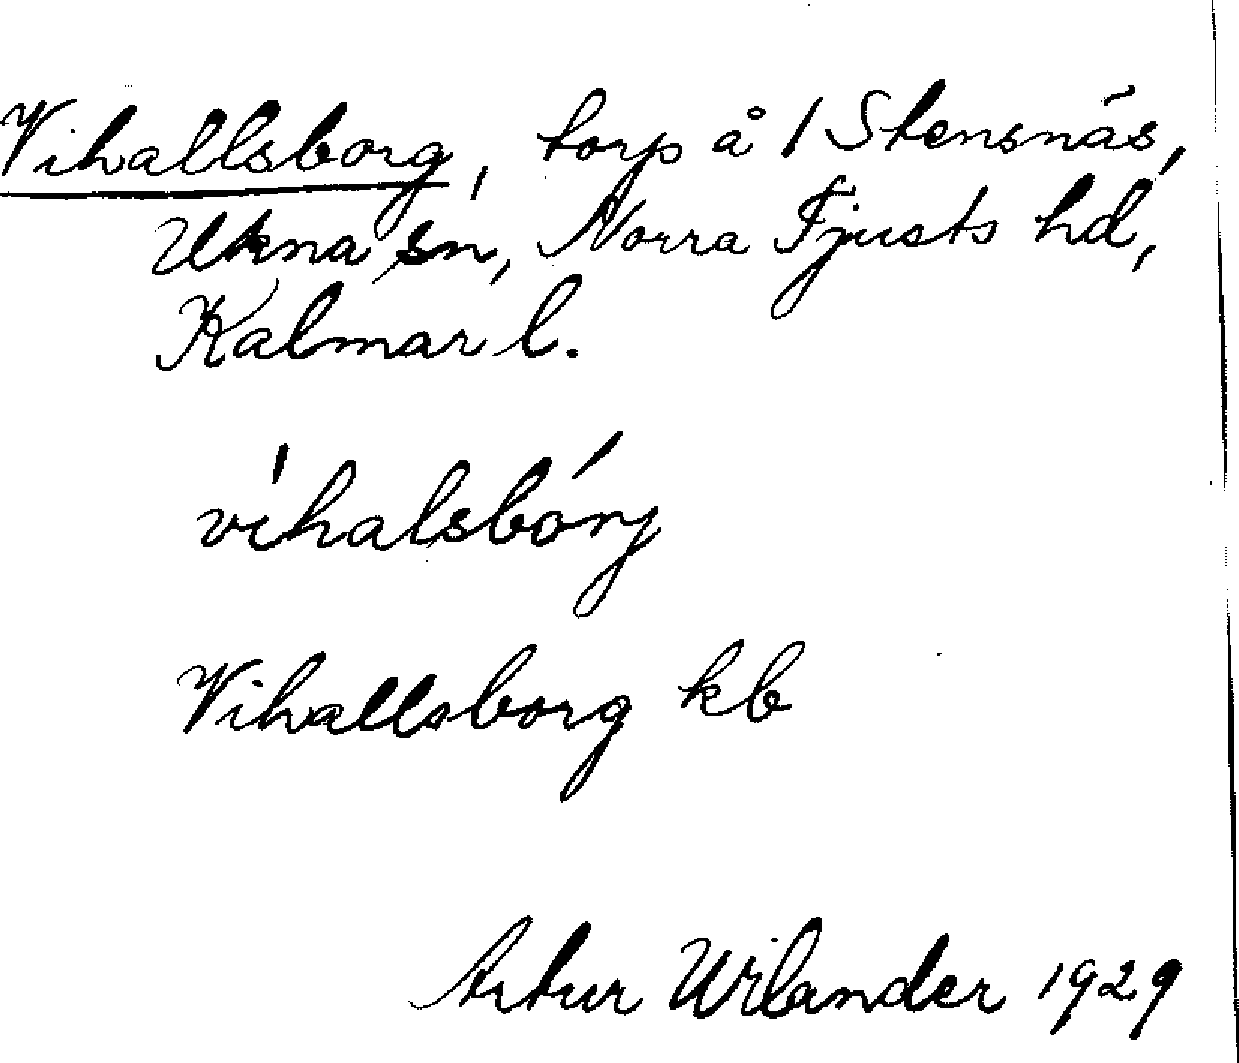 Vihallsborg, torp å 1 Stensnäs,
Ukna sn, Norra Tjusts hd,
Kalmar l.
víhalsbórj
Vihallsborg kb
Artur Wilander 1929